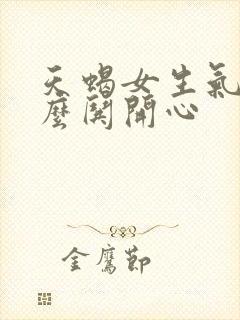 天蝎女生氣
麼鬨開心
金鷹節